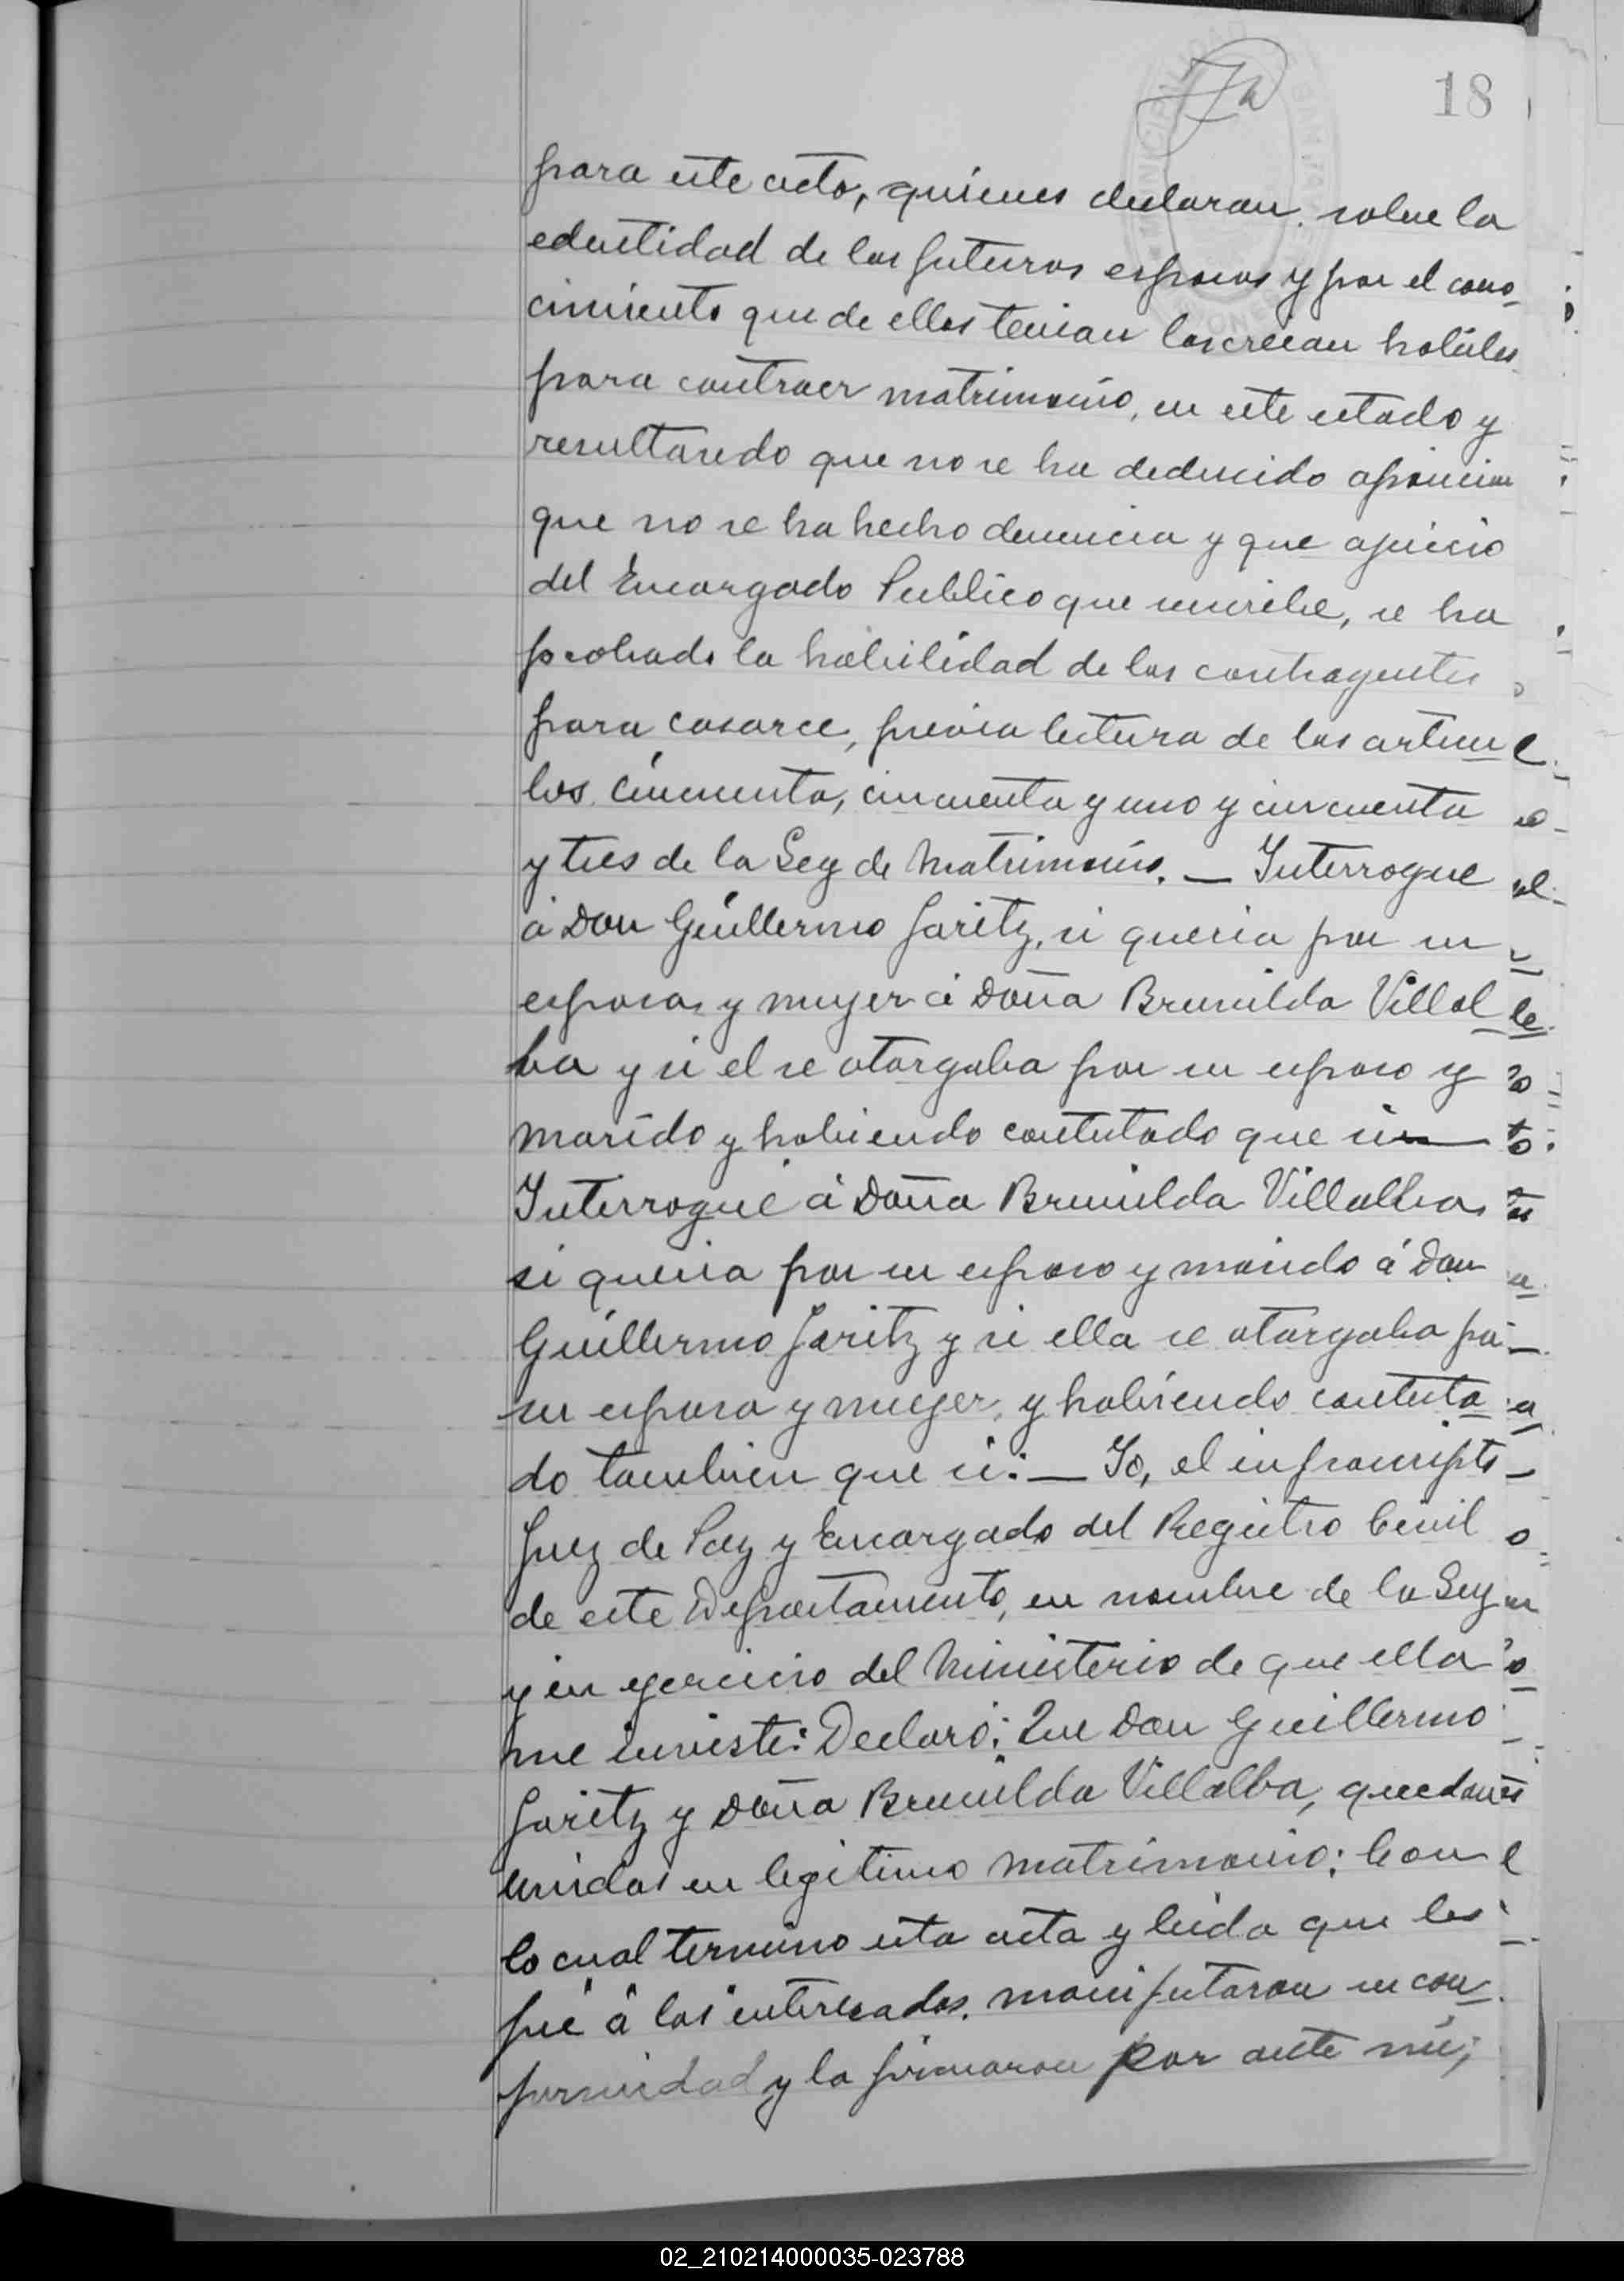 18
para este acto, quienes declaran sobre la
edentidad de los futuros esposos y por el cono-
cimiento que de ellos tenian los creian habiles
para contraer matrimonio, en este estado y
resultando que no se ha deducido oposicion
que no se ha hecho denuncia y que ajuicio
del Encargado Publico que suscribe, se ha
probado la habilidad de los contrayentes
para casarce, previa lectura de los articu
los cincuenta, cincuenta y uno y cincuenta
y tres de la Ley de Matrimonio. — Interrogue
á Don Guillermo Jaritz, si queria por su
esposa y muger á Doña Brunilda Villal
ba y si el se otorgaba por su esposo y
marido y habiendo contestado que si —
Interrogué á Doña Brunilda Villalba
si queria por su esposo y marido á Don
Guillermo Jaritz y si ella se otorgaba por
su esposa y muger, y habiendo contesta
do tambien que si: — Yo, el infrascripto
Juez de Paz y Encargado del Registro Civil
de este Departamento, en nombre de la Ley
y en egercicio del Ministerio de que ella
me inviste: Declaró: Que Don Guillermo
Jaritz y Doña Brunilda Villalba, quedan
unidos en legitimo matrimonio; Con
lo cual termino esta acta y leida que les
fué á los interesados, manifestaron su con
formidad y la firmaron por ante mi;
02_210214000035-023788